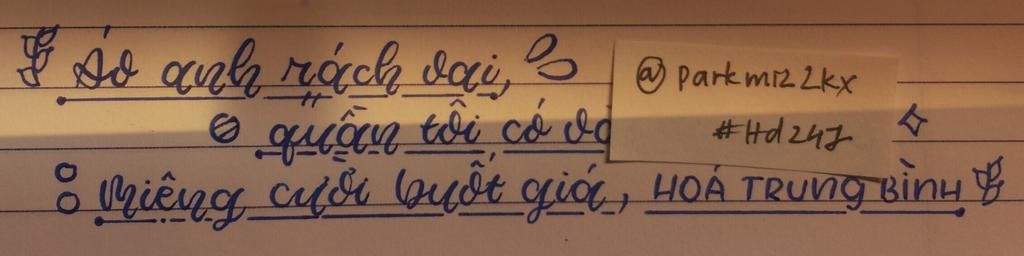 Áo anh rách vai,
@parkmr22kx
quần tôi có
#Hd247
Miệng cười buốt giá, HOÁ TRUNG BÌNH